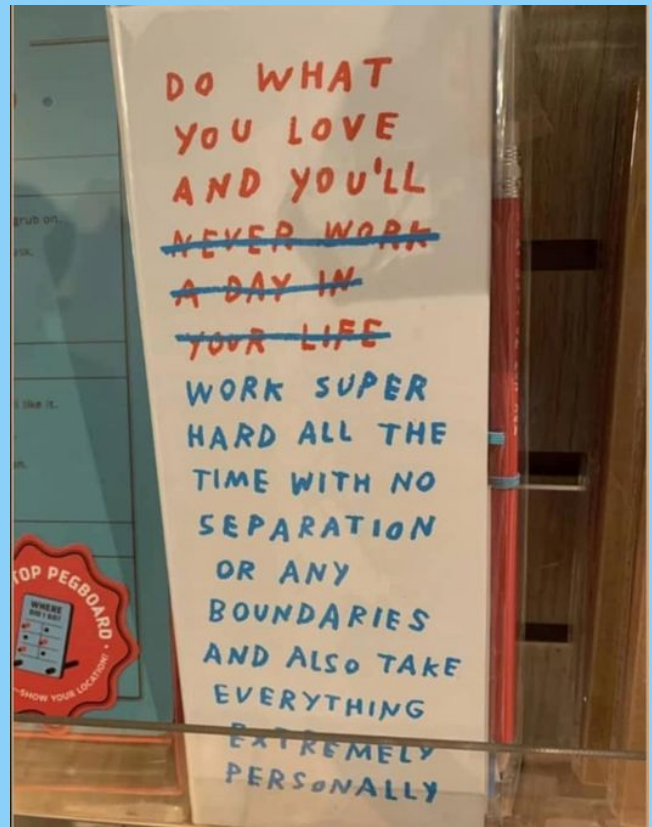 DO WHAT
YOU LOVE
AND YOU'LL
NEVER WORK
A DAY IN
YOUR LIFE
WORK SUPER
HARD ALL THE
TIME WITH NO
SEPARATION
OR ANY
BOUNDARIES
AND ALSO TAKE
EVERYTHING
EXTREMELY
PERSONALLY
grub on.
like it.
TOP PEGBOARD
WHERE
DID I GO?
SHOW YOUR LOCATION!